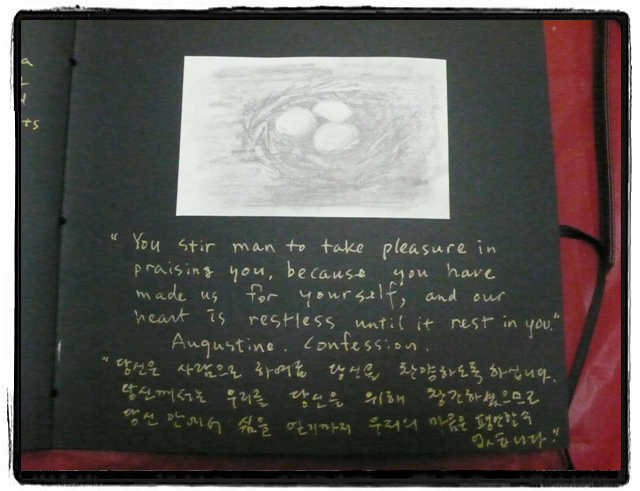 a
ts
“You stir man to take pleasure in
praising you, because you have
made us for yourself, and our
heart is restless until it rest in you.”
Augustine. Confession
“당신은 사람으로 하여금 당신을 찬양하도록 하십니다.
당신께서는 우리를 당신을 위해 창조하셨으므로
당신 안에서 쉼을 얻기까지 우리의 마음은 평안할 수
없습니다.”